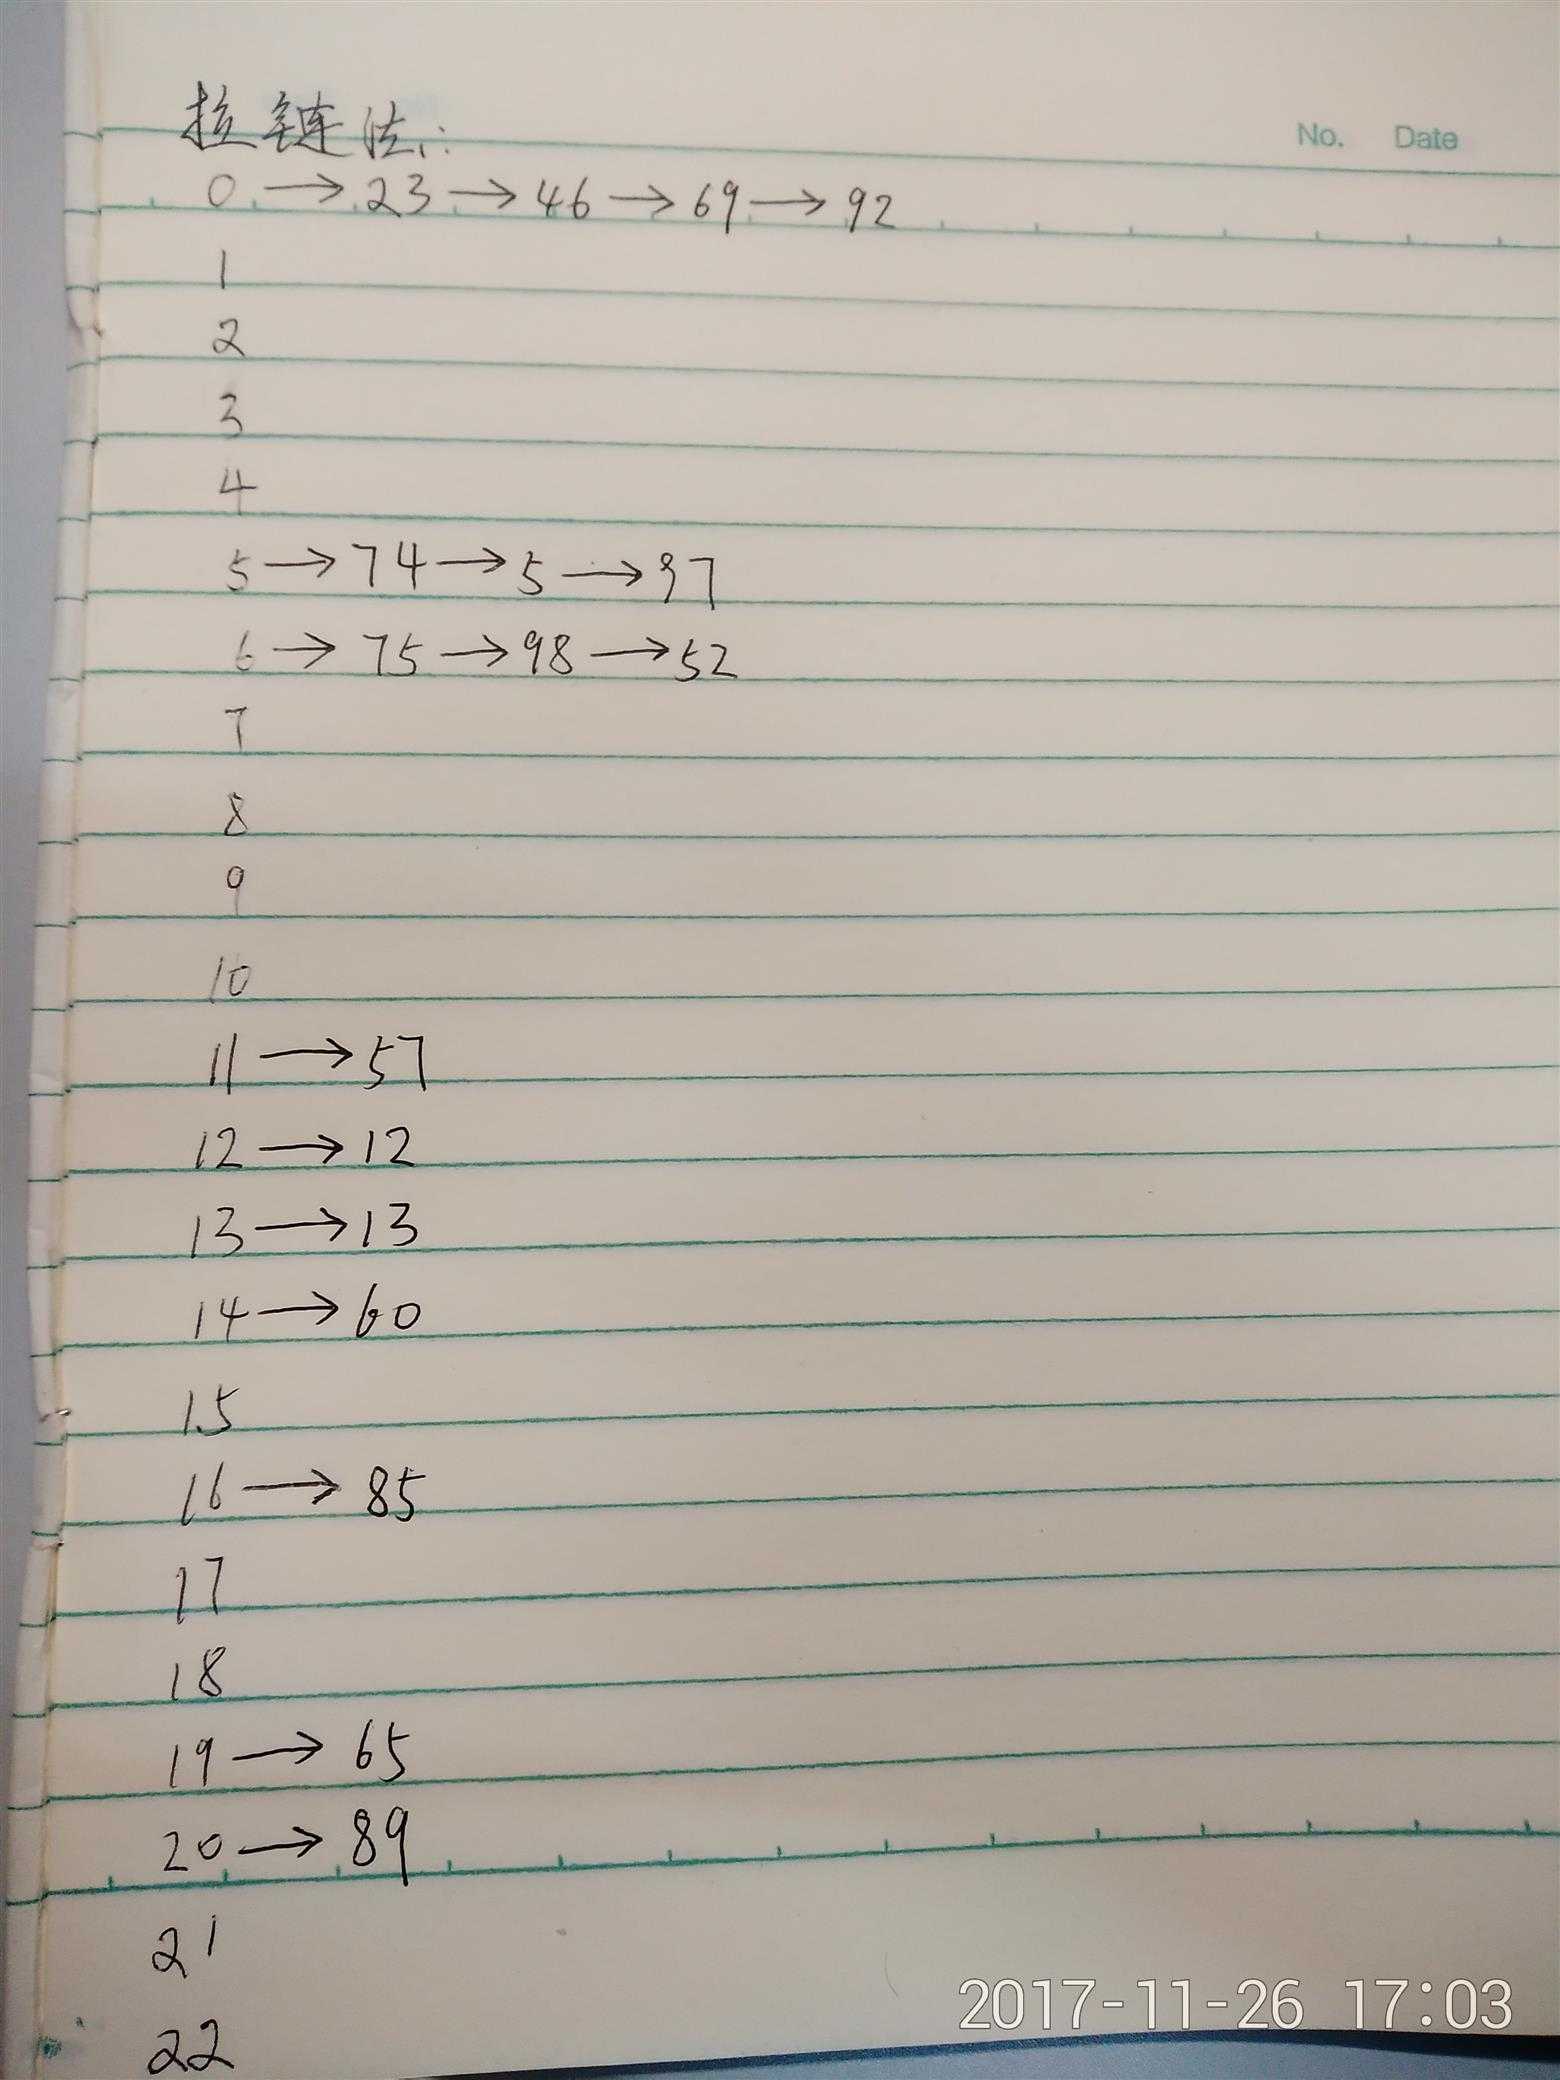 拉链法:
No. Date
0 → 23 → 46 → 69 → 92
1
2
3
4
5 → 74 → 5 → 97
6 → 75 → 98 → 52
7
8
9
10
11 → 57
12 → 12
13 → 13
14 → 60
15
16 → 85
17
18
19 → 65
20 → 89
21
22
2017-11-26 17:03